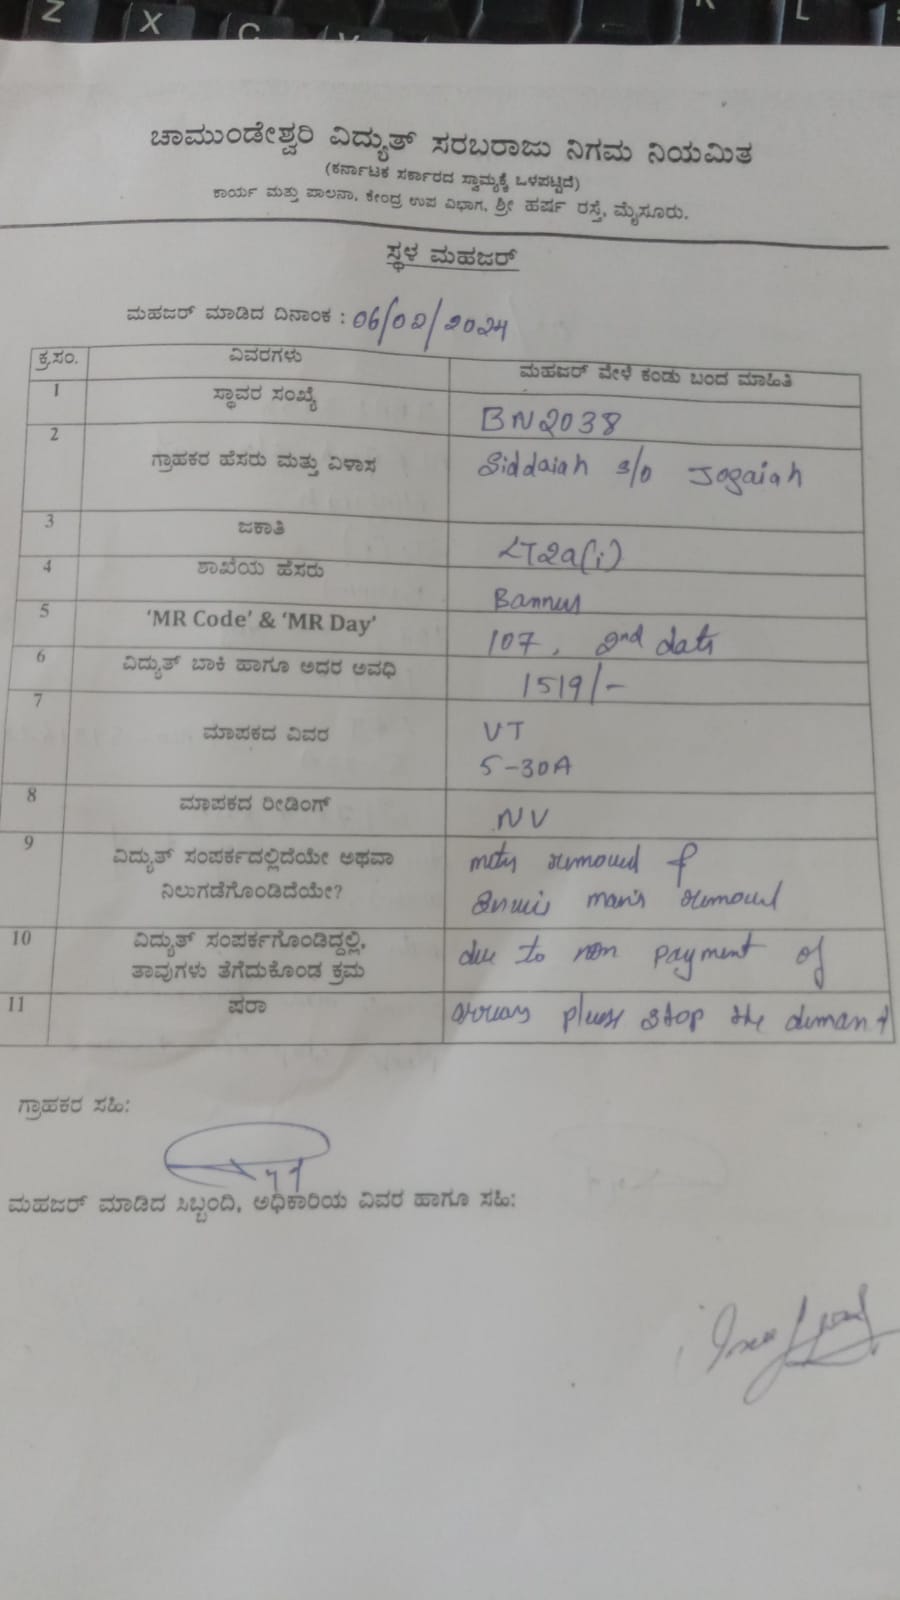 Z X C K L
ಚಾಮುಂಡೇಶ್ವರಿ ವಿದ್ಯುತ್ ಸರಬರಾಜು ನಿಗಮ ನಿಯಮಿತ
(ಕರ್ನಾಟಕ ಸರ್ಕಾರದ ಸ್ವಾಮ್ಯಕ್ಕೆ ಒಳಪಟ್ಟಿದೆ)
ಕಾರ್ಯ ಮತ್ತು ಪಾಲನಾ, ಕೇಂದ್ರ ಉಪ ವಿಭಾಗ, ಶ್ರೀ ಹರ್ಷ ರಸ್ತೆ, ಮೈಸೂರು.
ಸ್ಥಳ ಮಹಜರ್
ಮಹಜರ್ ಮಾಡಿದ ದಿನಾಂಕ : 06/02/2024
ಕ್ರ.ಸಂ. ವಿವರಗಳು ಮಹಜರ್ ವೇಳೆ ಕಂಡು ಬಂದ ಮಾಹಿತಿ
1 ಸ್ಥಾವರ ಸಂಖ್ಯೆ BN2038
2 ಗ್ರಾಹಕರ ಹೆಸರು ಮತ್ತು ವಿಳಾಸ Siddaiah s/o Jogaiah
3 ಜಕಾತಿ LT2a(i)
4 ಶಾಖೆಯ ಹೆಸರು
5 'MR Code' & 'MR Day' 107, 2nd date
6 ವಿದ್ಯುತ್ ಬಾಕಿ ಹಾಗೂ ಅದರ ಅವಧಿ 1519/-
7 ಮಾಪಕದ ವಿವರ VT
5-30A
8 ಮಾಪಕದ ರೀಡಿಂಗ್ NV
9 ವಿದ್ಯುತ್ ಸಂಪರ್ಕದಲ್ಲಿದೆಯೇ ಅಥವಾ removed
ನಿಲುಗಡೆಗೊಂಡಿದೆಯೇ? removed
10 ವಿದ್ಯುತ್ ಸಂಪರ್ಕಗೊಂಡಿದ್ದಲ್ಲಿ, due to non payment of
ತಾವುಗಳು ತೆಗೆದುಕೊಂಡ ಕ್ರಮ
11 ಷರಾ arrears please stop the demand
ಗ್ರಾಹಕರ ಸಹಿ:
ಮಹಜರ್ ಮಾಡಿದ ಸಿಬ್ಬಂದಿ, ಅಧಿಕಾರಿಯ ವಿವರ ಹಾಗೂ ಸಹಿ: